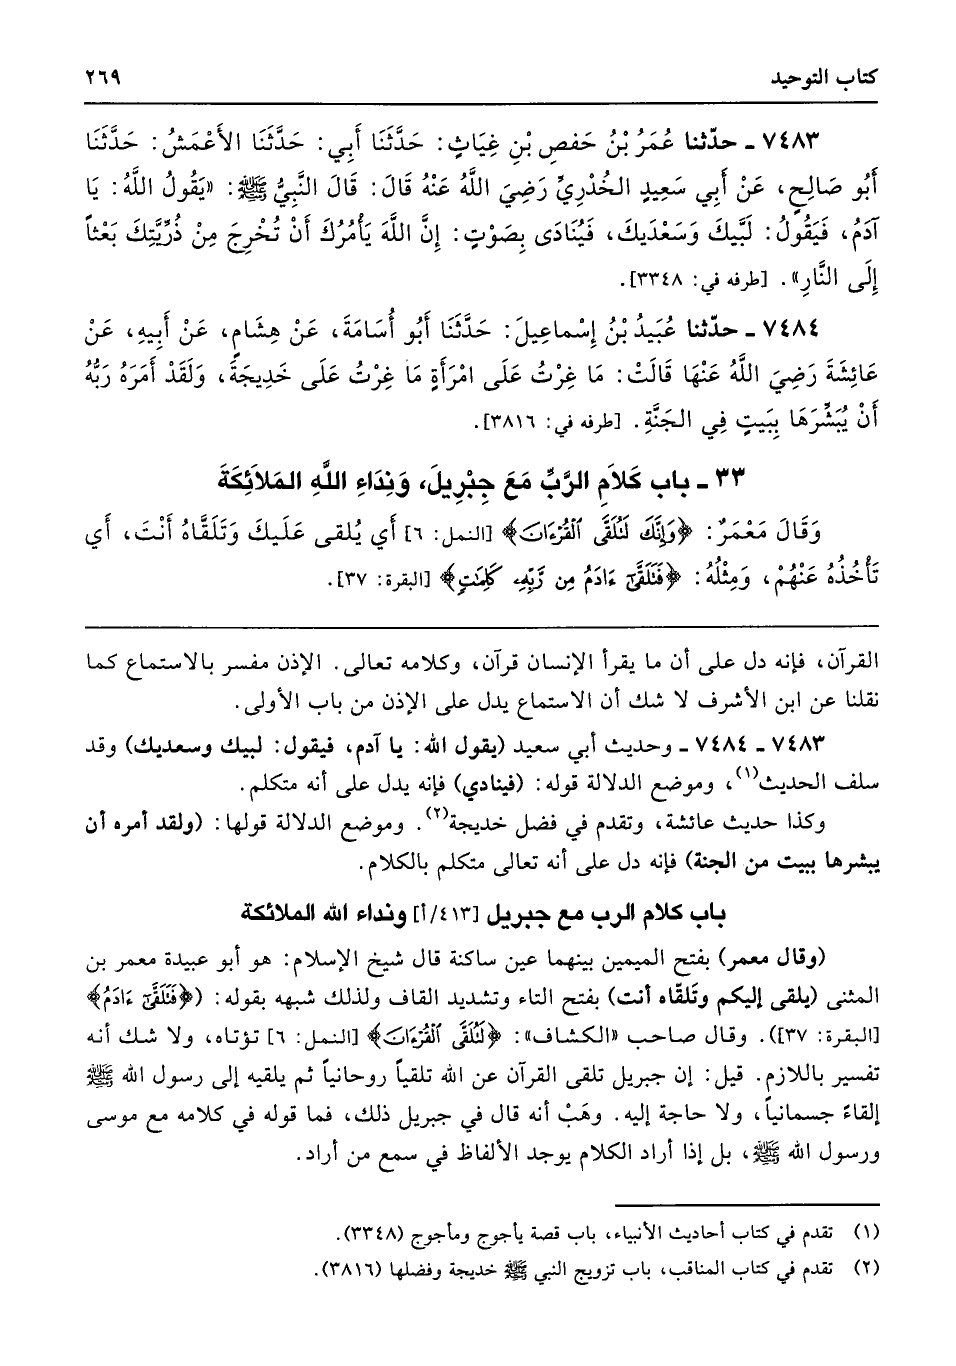 كتاب التوحيد ٢٦٩
٧٤٨٣ ـ حدّثنا عُمَرُ بْنُ حَفصِ بْنِ غِيَاثٍ: حَدَّثَنَا أَبِي: حَدَّثَنَا الأَعْمَشُ: حَدَّثَنَا
أَبُو صَالِحٍ، عَنْ أَبِي سَعِيدٍ الخُدْرِيِّ رَضِيَ اللَّهُ عَنْهُ قَالَ: قَالَ النَّبِيُّ ﷺ: «يَقُولُ اللَّهُ: يَا
آدَمُ، فَيَقُولُ: لَبَّيكَ وَسَعْدَيكَ، فَيُنَادَى بِصَوْتٍ: إِنَّ اللَّهَ يَأْمُرُكَ أَنْ تُخْرِجَ مِنْ ذُرِّيَّتِكَ بَعْثاً
إِلَى النَّارِ». [طرفه في: ٣٣٤٨].
٧٤٨٤ ـ حدّثنا عُبَيدُ بْنُ إِسْماعِيلَ: حَدَّثَنَا أَبُو أُسَامَةَ، عَنْ هِشَامٍ، عَنْ أَبِيهِ، عَنْ
عَائِشَةَ رَضِيَ اللَّهُ عَنْهَا قَالَتْ: مَا غِرْتُ عَلَى امْرَأَةٍ مَا غِرْتُ عَلَى خَدِيجَةَ، وَلَقَدْ أَمَرَهُ رَبُّهُ
أَنْ يُبَشِّرَهَا بِبَيتٍ فِي الجَنَّةِ. [طرفه في: ٣٨١٦].
٣٣ ـ باب كَلاَمِ الرَّبِّ مَعَ جِبْرِيلَ، وَنِدَاءِ اللَّهِ المَلاَئِكَةَ
وَقَالَ مَعْمَرٌ: ﴿وَإِنَّكَ لَتُلَقَّى ٱلْقُرْءَانَ﴾ [النمل: ٦] أَي يُلقى عَلَيكَ وَتَلَقَّاهُ أَنْتَ، أَي
تَأْخُذُهُ عَنْهُمْ، وَمِثْلُهُ: ﴿فَتَلَقَّىٰٓ ءَادَمُ مِن رَّبِّهِۦ كَلِمَٰتٍ﴾ [البقرة: ٣٧].
القرآن، فإنه دل على أن ما يقرأ الإنسان قرآن، وكلامه تعالى. الإذن مفسر بالاستماع كما
نقلنا عن ابن الأشرف لا شك أن الاستماع يدل على الإذن من باب الأولى.
٧٤٨٣ ـ ٧٤٨٤ ـ وحديث أبي سعيد (يقول الله: يا آدم، فيقول: لبيك وسعديك) وقد
سلف الحديث(١)، وموضع الدلالة قوله: (فينادي) فإنه يدل على أنه متكلم.
وكذا حديث عائشة، وتقدم في فضل خديجة(٢). وموضع الدلالة قولها: (ولقد أمره أن
يبشرها ببيت من الجنة) فإنه دل على أنه تعالى متكلم بالكلام.
باب كلام الرب مع جبريل [٤١٣/أ] ونداء الله الملائكة
(وقال معمر) بفتح الميمين بينهما عين ساكنة قال شيخ الإسلام: هو أبو عبيدة معمر بن
المثنى (يلقى إليكم وتَلقّاه أنت) بفتح التاء وتشديد القاف ولذلك شبهه بقوله: (﴿فَتَلَقَّىٰٓ ءَادَمُ﴾
[البقرة: ٣٧]). وقال صاحب «الكشاف»: ﴿لَتُلَقَّى ٱلْقُرْءَانَ﴾ [النمل: ٦] تؤتاه، ولا شك أنه
تفسير باللازم. قيل: إن جبريل تلقى القرآن عن الله تلقياً روحانياً ثم يلقيه إلى رسول الله ﷺ
إلقاءً جسمانياً، ولا حاجة إليه. وهَبْ أنه قال في جبريل ذلك، فما قوله في كلامه مع موسى
ورسول الله ﷺ، بل إذا أراد الكلام يوجد الألفاظ في سمع من أراد.
(١) تقدم في كتاب أحاديث الأنبياء، باب قصة يأجوج ومأجوج (٣٣٤٨).
(٢) تقدم في كتاب المناقب، باب تزويج النبي ﷺ خديجة وفضلها (٣٨١٦).